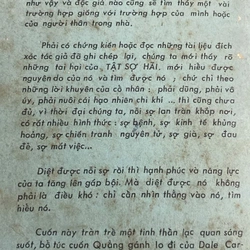 như vậy và độc giả nào cũng sẽ tìm thấy một vài
trường hợp giống với trường hợp của mình hoặc
của người thân trong nhà.
Phải có chứng kiến hoặc đọc những tài liệu đích
xác tác giả đã ghi chép lại, chúng ta mới thấy rõ
những tai hại của TẬT SỢ HÃI. mới hiểu được
nguyên do của nó và tìm được nó ; chứ chỉ theo
những lời khuyên của cổ nhân : phải dũng, phải vô
úy, phải nuôi cái hạo nhiên chi khí ... thì cũng chưa
đủ, vì thời đại chúng ta, nỗi sợ lan tràn khắp nơi,
có rất nhiều hình thức : sợ bệnh, sợ kinh tế khủng
hoảng, sợ chiến tranh nguyên tử, sợ già, sợ đau
đẻ, sợ mất việc...
Diệt được nỗi sợ rồi thì hạnh phúc và năng lực
của ta tăng lên gấp bội. Mà diệt được nó không
phải là điều khó : chỉ cần nhìn thẳng vào nó, tìm
hiểu nó.
Cuốn này tràn trề một tinh thần lạc quan sáng
suốt, bổ túc cuốn Quẳng gánh lo đi của Dale Car-